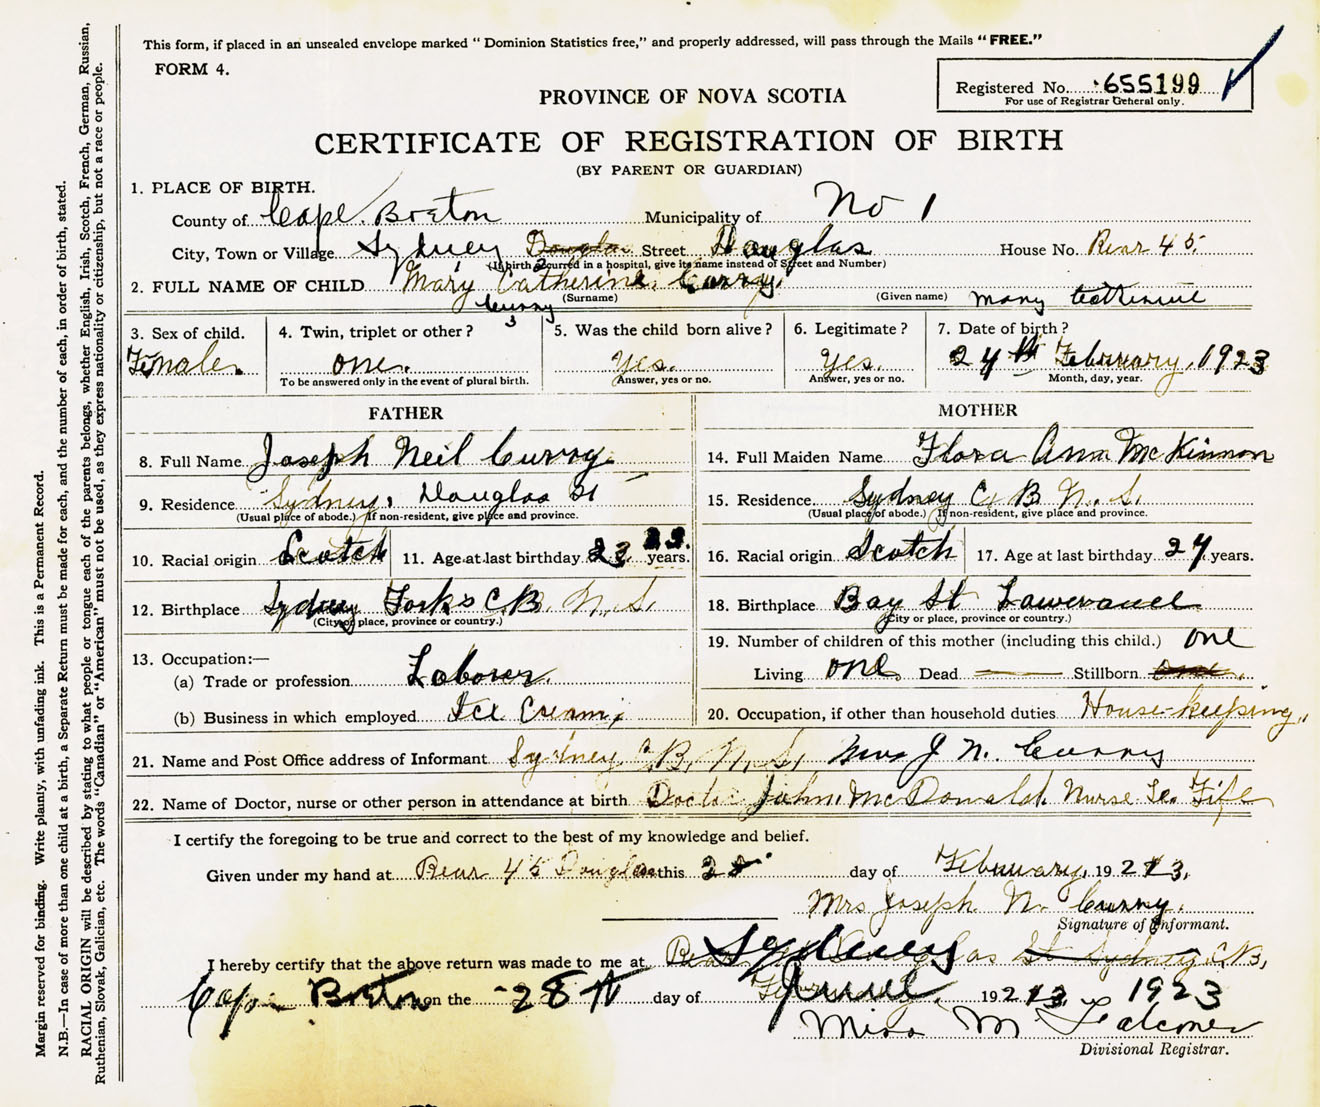 This form, if placed in an unsealed envelope marked "Dominion Statistics free," and properly addressed, will pass through the Mails "FREE."
FORM 4.
Registered No. 655199
For use of Registrar General only.
PROVINCE OF NOVA SCOTIA
CERTIFICATE OF REGISTRATION OF BIRTH
(BY PARENT OR GUARDIAN)
1. PLACE OF BIRTH.
County of Cape Breton Municipality of No 1
City, Town or Village Sydney Street Douglas House No. Rear 45
(If birth occurred in a hospital, give its name instead of Street and Number)
2. FULL NAME OF CHILD Mary Catherine Curry
Curry (Surname) (Given name) Mary Catherine
3. Sex of child. 4. Twin, triplet or other? 5. Was the child born alive? 6. Legitimate? 7. Date of birth?
Female one. yes. yes. 24th February, 1923
To be answered only in the event of plural birth. Answer, yes or no. Answer, yes or no. Month, day, year.
FATHER
8. Full Name Joseph Neil Curry
9. Residence Sydney, Douglas St
(Usual place of abode.) If non-resident, give place and province.
10. Racial origin Scotch 11. Age at last birthday 23 years.
12. Birthplace Sydney Forks C.B. N.S.
(City or place, province or country.)
13. Occupation:—
(a) Trade or profession Laborer.
(b) Business in which employed Ice Cream.
MOTHER
14. Full Maiden Name Flora Ann McKinnon
15. Residence Sydney C. B N. S.
(Usual place of abode.) If non-resident, give place and province.
16. Racial origin Scotch 17. Age at last birthday 24 years.
18. Birthplace Bay St
(City or place, province or country.)
19. Number of children of this mother (including this child.) one
Living one Dead — Stillborn
20. Occupation, if other than household duties House-keeping,
21. Name and Post Office address of Informant Sydney C.B. N.S. Mrs J N. Curry
22. Name of Doctor, nurse or other person in attendance at birth Doctor John McDonald. Nurse Fife
I certify the foregoing to be true and correct to the best of my knowledge and belief.
Given under my hand at Rear 45 Douglas this day of February, 1923,
Mrs Joseph N. Curry.
Signature of Informant.
I hereby certify that the above return was made to me at Sydney
Cape Breton on the 28th day of June 1923
Miss M Falconer
Divisional Registrar.
Margin reserved for binding. Write plainly, with unfading ink. This is a Permanent Record.
N.B.—In case of more than one child at a birth, a Separate Return must be made for each, and the number of each, in order of birth, stated.
RACIAL ORIGIN will be described by stating to what people or tongue each of the parents belongs, whether English, Irish, Scotch, French, German, Russian,
Ruthenian, Slovak, Galician, etc. The words "Canadian" or "American" must not be used, as they express nationality or citizenship, but not a race or people.